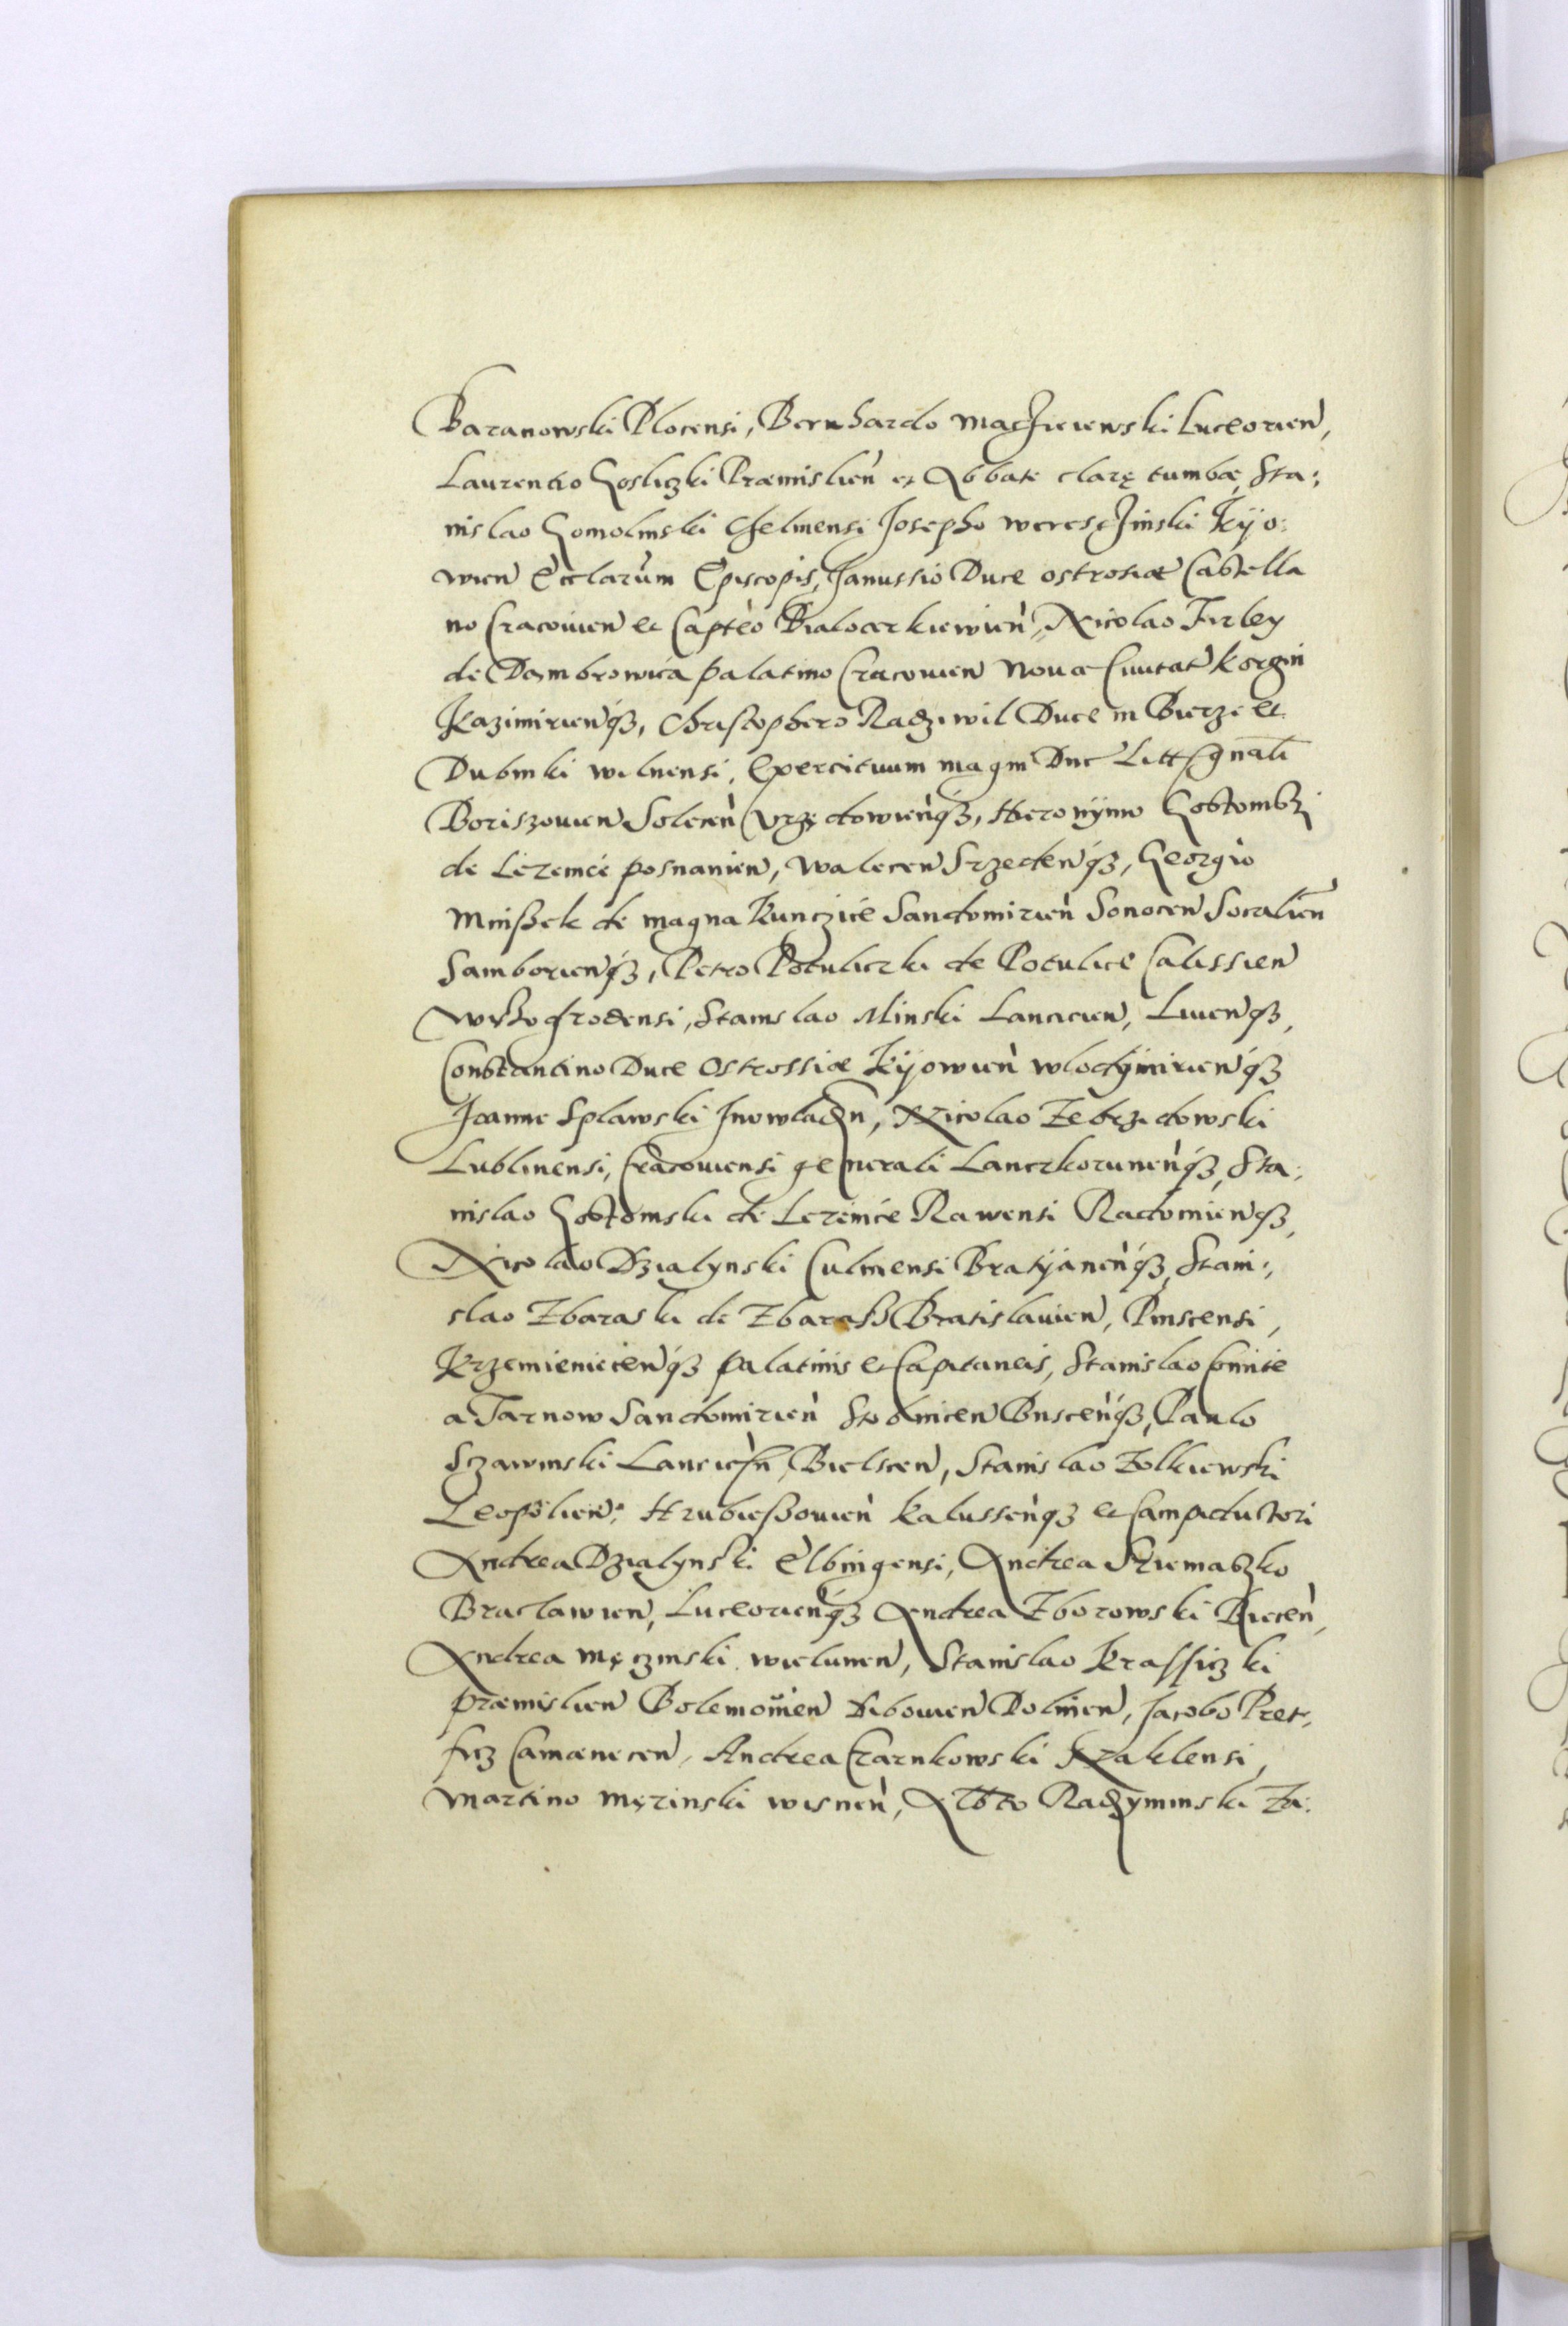 Baranowski Plocensi, Bernhardo Macÿeiewski Luceorien,
Laurentio Gosliczki Præmislien et Abbate claræ tumbæ, Sta:
nislao Gomolinski Chelmensi Josepho weresczinski Kijo:
wien Ecclarum Episcopis, Janussio Duce ostrosiæ Castella
no Cracovien et Capteo Bialocerkiewien, Nicolao Firley
de Dambrowica palatino Cracovien Novæ Civitat Korczin
Kazimirienqȝ, Christophero Radziwil Duce in Bierze et
Dubinki wilnensi, Exercituum magni Duc Litt Gnali
Boriszovien Solecen Vrzędowienqȝ, Hieronÿmo Gostomski
de Lezenice posnanien, walecen Srzedenqȝ, Georgio
Mnißek de magna Kunczice Sandomirien Sonocen Socalien
Samborienqȝ, Petro Potuliczki de Potulice Calissien
wyßogrodensi, Stanislao Minski Lancicien, Livenqȝ,
Constantino Duce Ostrossiæ Kijowien wlodÿmirienqȝ
Joanne Splawski Jnowladn, Nicolao Zebrzidowski
Lublinensi, Cracoviensi generali Lanczkorunenqȝ, Sta:
nislao Gostomski de Lezenice Rawensi Radomienqȝ,
Nicolao Dzialynski Culmensi Bratÿanenqȝ, Stani:
slao Zbaraski de Zbaraß Bratislavien, Pinscensi,
Krzemieniecenqȝ palatinis et Capitaneis, Stanislao Comite
a Tarnow Sandomirien Stobnicen Buscenqȝ, Paulo
Sczawinski Lancicien, Bielscen, Stanislao Zolkiewski
Leopolien, Hrubießovien Kalussenqȝ et Campiductori
Andrea Dzialynski Elbingensi, Andrea
Braclawien, Luceorienqȝ Andrea Zborowski Biecen,
Andrea Męczinski wielunen, Stanislao Krassiczki
præmislien Bolemovien Dolinen, Jacobo Pret,
ficz Camænecen, Andrea Czarnkowski Naklensi,
Martino Męcinski wisnen, Albto Radzyminski Za: